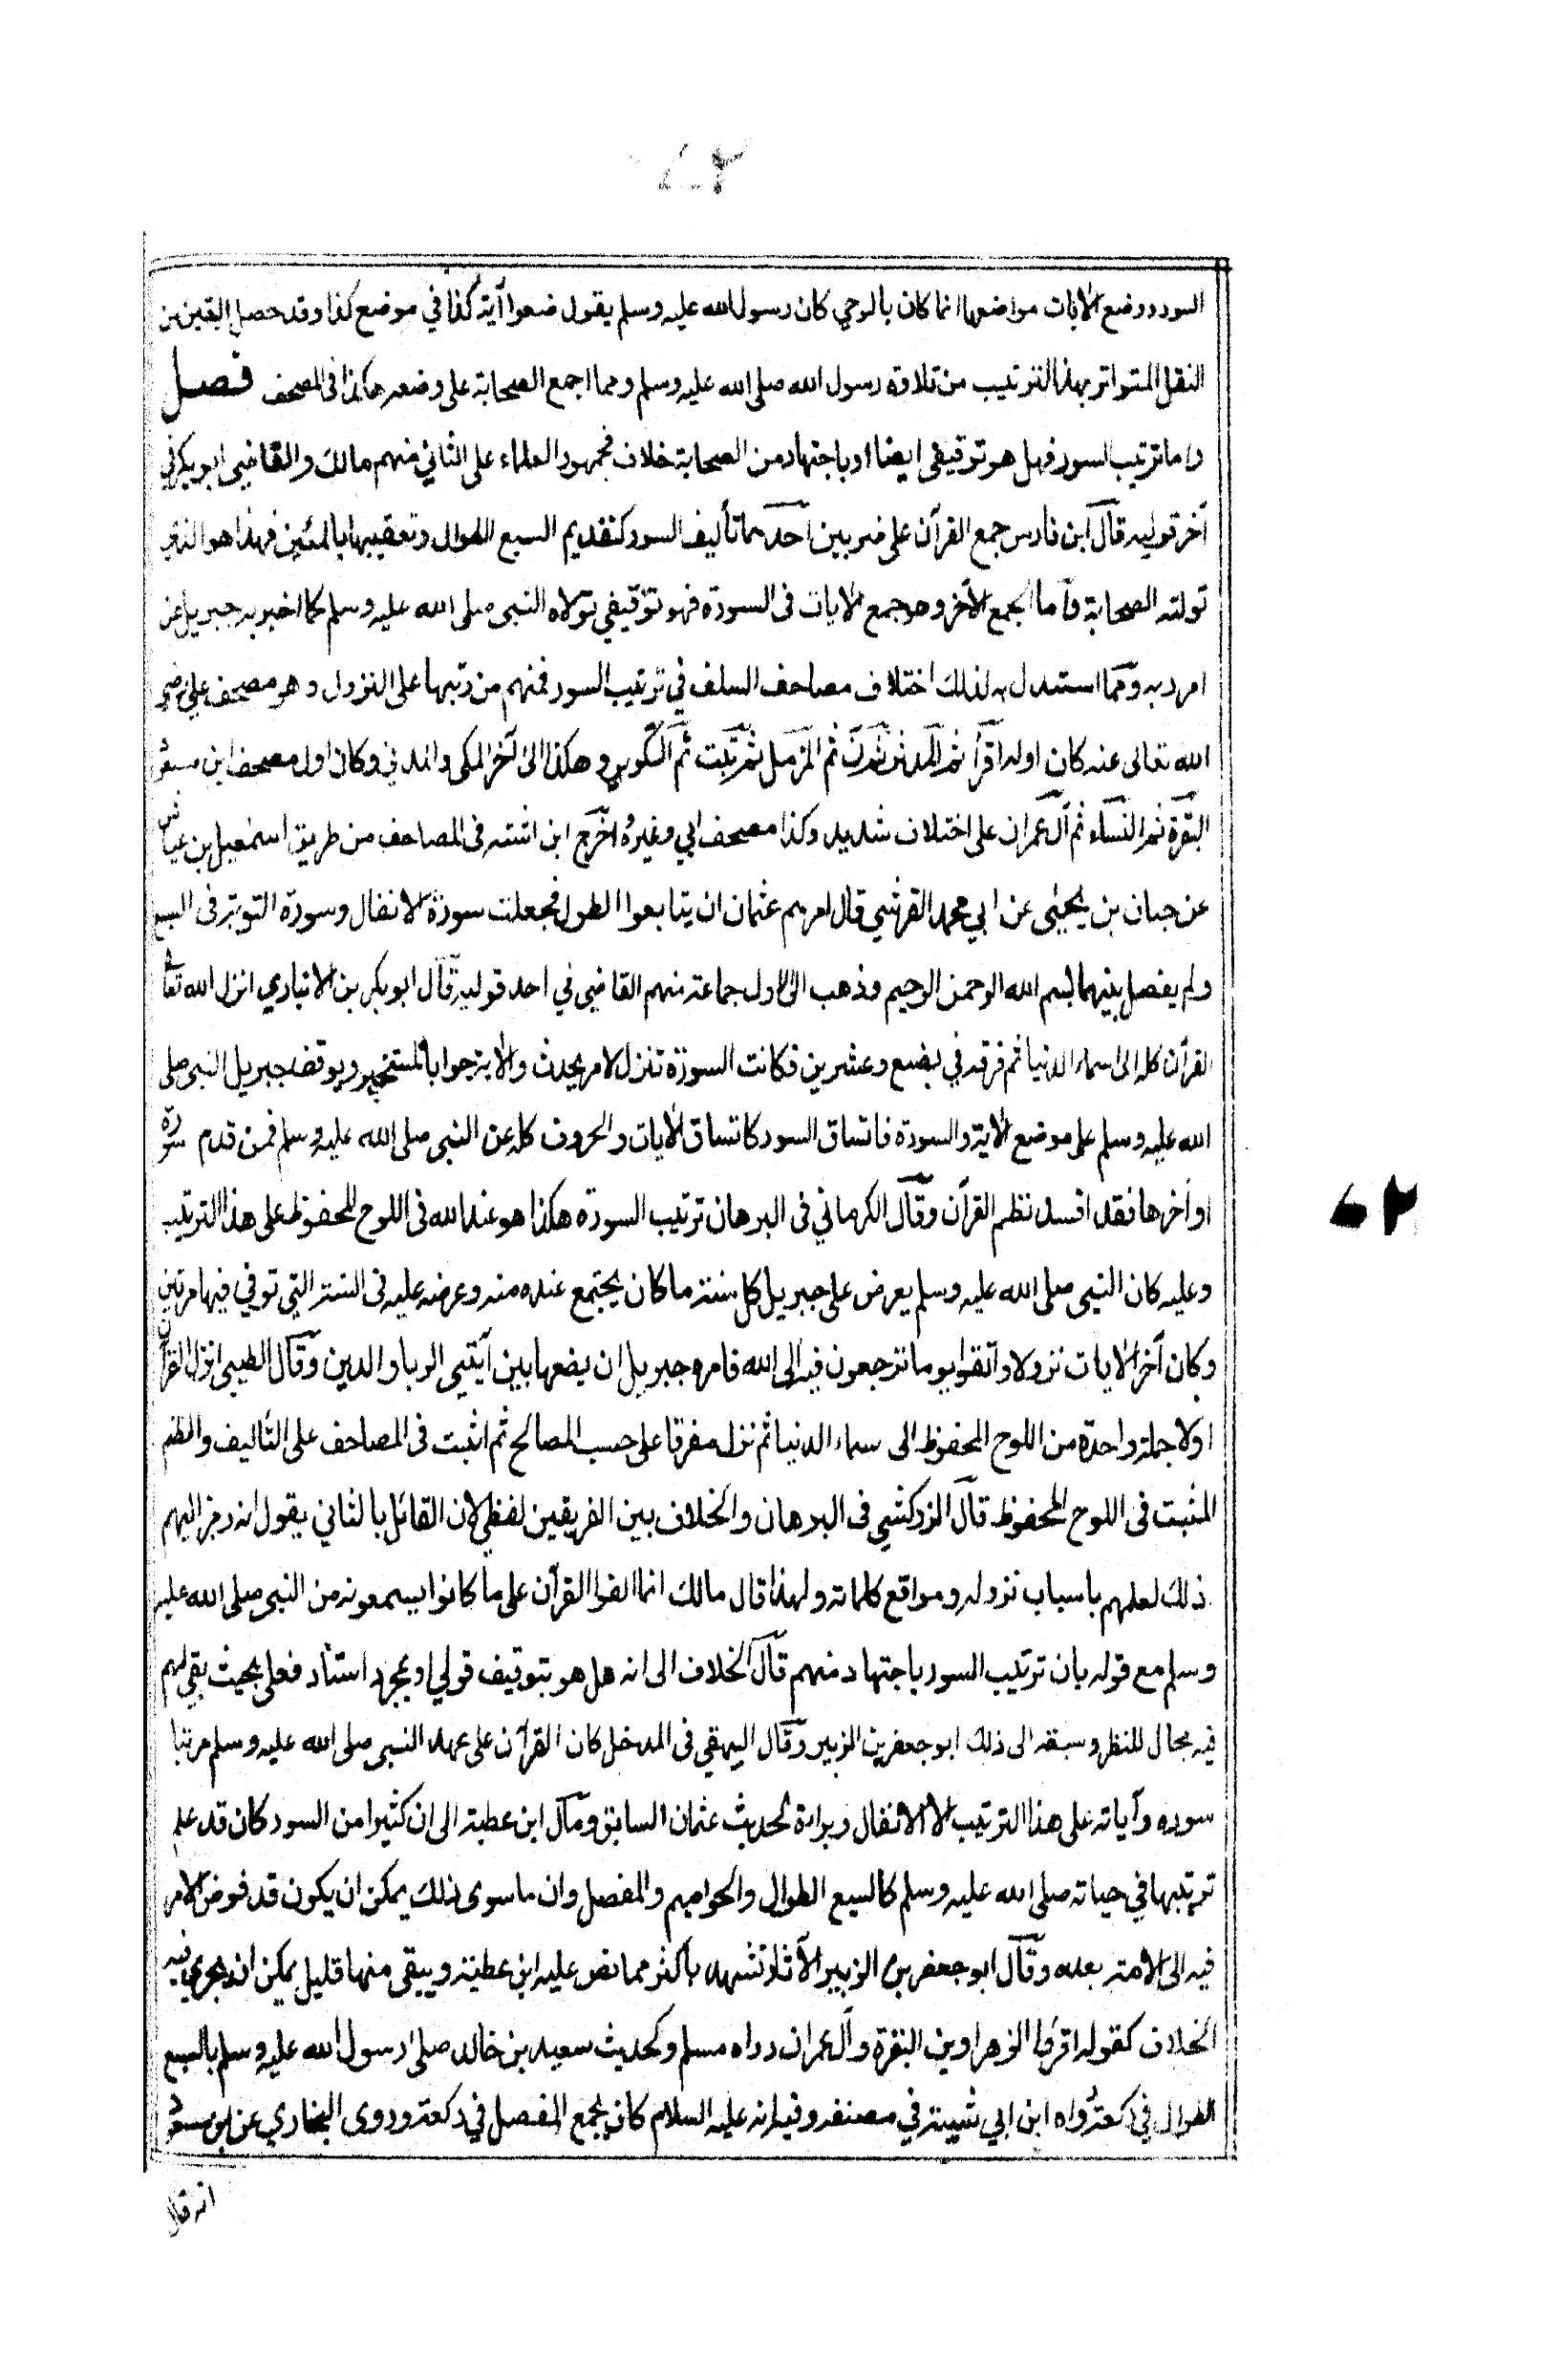 السور ووضع الآيات مواضعها انما كان بالوحي كان رسول الله عليه وسلم يقول ضعوا آية كذا في موضع كذا وقد حصل اليقين من
النقل المتواتر بهذا الترتيب من تلاوة رسول الله صلى الله عليه وسلم ومما اجمع الصحابة على وضعه هكذا فى المصحف فصل
واما ترتيب السور فهل هو توقيفى ايضا او باجتهاد من الصحابة خلاف فجمهور العلماء على الثاني منهم مالك والقاضي ابو بكر في
آخر قوليه قال ابن فارس جمع القرآن على ضربين احدهما تأليف السور كتقديم السبع الطوال وتعقيبها بالمئين فهذا هو الذي
تولته الصحابة وأما الجمع الآخر وهو جمع الايات فى السورة فهو توقيفي تولاه النبى صلى الله عليه وسلم كما اخبر به جبريل عن
امر ربه ومما استدل به لذلك اختلاف مصاحف السلف في ترتيب السور فمنهم من رتبها على النزول وهو مصحف علي رضي
الله تعالى عنه كان اوله اقرأ ثم المدثر ثم ن ثم المزمل ثم تبت ثم التكوير وهكذا الى آخر المكى والمدني وكان اول مصحف ابن مسعود
البقرة ثم النساء ثم آل عمران على اختلاف شديد وكذا مصحف ابي وغيره اخرج ابن اشته فى المصاحف من طريق اسمعيل بن عياش
عن حبان بن يحيى عن ابي محمد القرشي قال امرهم عثمان ان يتابعوا الطول فجعلت سورة الانفال وسورة التوبة فى السبع
ولم يفصل بينهما ببسم الله الرحمن الرحيم وذهب الى الاول جماعة منهم القاضي في احد قوليه قال ابو بكر بن الانباري انزل الله تعالى
القرآن كله الى اسماء الدنيا ثم فرقه في بضع وعشرين فكانت السورة تنزل لامر يحدث والاية جوابا لمستخبر ويوقف جبريل النبى صلى
الله عليه وسلم على موضع الاية والسورة فاتساق السور كاتساق الايات والحروف كله عن النبى صلى الله عليه وسلم فمن قدم سورة
او اخرها فقد افسد نظم القرآن وقال الكرماني فى البرهان ترتيب السورة هكذا هو عند الله فى اللوح المحفوظ على هذا الترتيب
وعليه كان النبى صلى الله عليه وسلم يعرض على جبريل كل سنة ما كان يجتمع عنده منه وعرضه عليه فى السنة التي توفي فيها مرتين
وكان آخر الايات نزولا واتقوا يوما ترجعون فيه الى الله فامره جبريل ان يضعها بين آيتي الربا والدين وقال الطيبى انزل القرآن
اولا جملة واحدة من اللوح المحفوظ الى سماء الدنيا ثم نزل مفرقا على حسب المصالح ثم اثبت فى المصاحف على التأليف والنظم
المثبت فى اللوح المحفوظ قال الزركشي فى البرهان والخلاف بين الفريقين لفظي لان القائل بالثاني يقول انه رمز اليهم
ذلك لعلمهم باسباب نزوله ومواقع كلماته ولهذا قال مالك انما الفوا القرآن على ما كانوا يسمعونه من النبى صلى الله عليه
وسلم مع قوله بان ترتيب السور باجتهاد منهم قال الخلاف الى انه هل هو بتوقيف قولي او بمجرد استناد فعلي بحيث بقي لهم
فيه مجال للنظر وسبقه الى ذلك ابو جعفر بن الزبير وقال البيهقي فى المدخل كان القرآن على عهد النبى صلى الله عليه وسلم مرتبا
سوره وآياته على هذا الترتيب الا الانفال وبراءة لحديث عثمان السابق ومال ابن عطية الى ان كثيرا من السور كان قد علم
ترتيبها في حياته صلى الله عليه وسلم كالسبع الطوال والحواميم والمفصل وان ما سوى ذلك يمكن ان يكون قد فوض الامر
فيه الى الامة بعده وقال ابو جعفر بن الزبير الآثار تشهد باكثر مما نص عليه ابن عطية ويبقى منها قليل يمكن ان يجري فيه
الخلاف كقوله اقرؤا الزهراوين البقرة وآل عمران رواه مسلم وكحديث سعيد بن خالد صلى رسول الله عليه وسلم بالسبع
الطوال في ركعة رواه ابن ابي شيبة في مصنفه وفيه انه عليه السلام كان يجمع المفصل في ركعة وروى البخاري عن ابن مسعود
انه قال